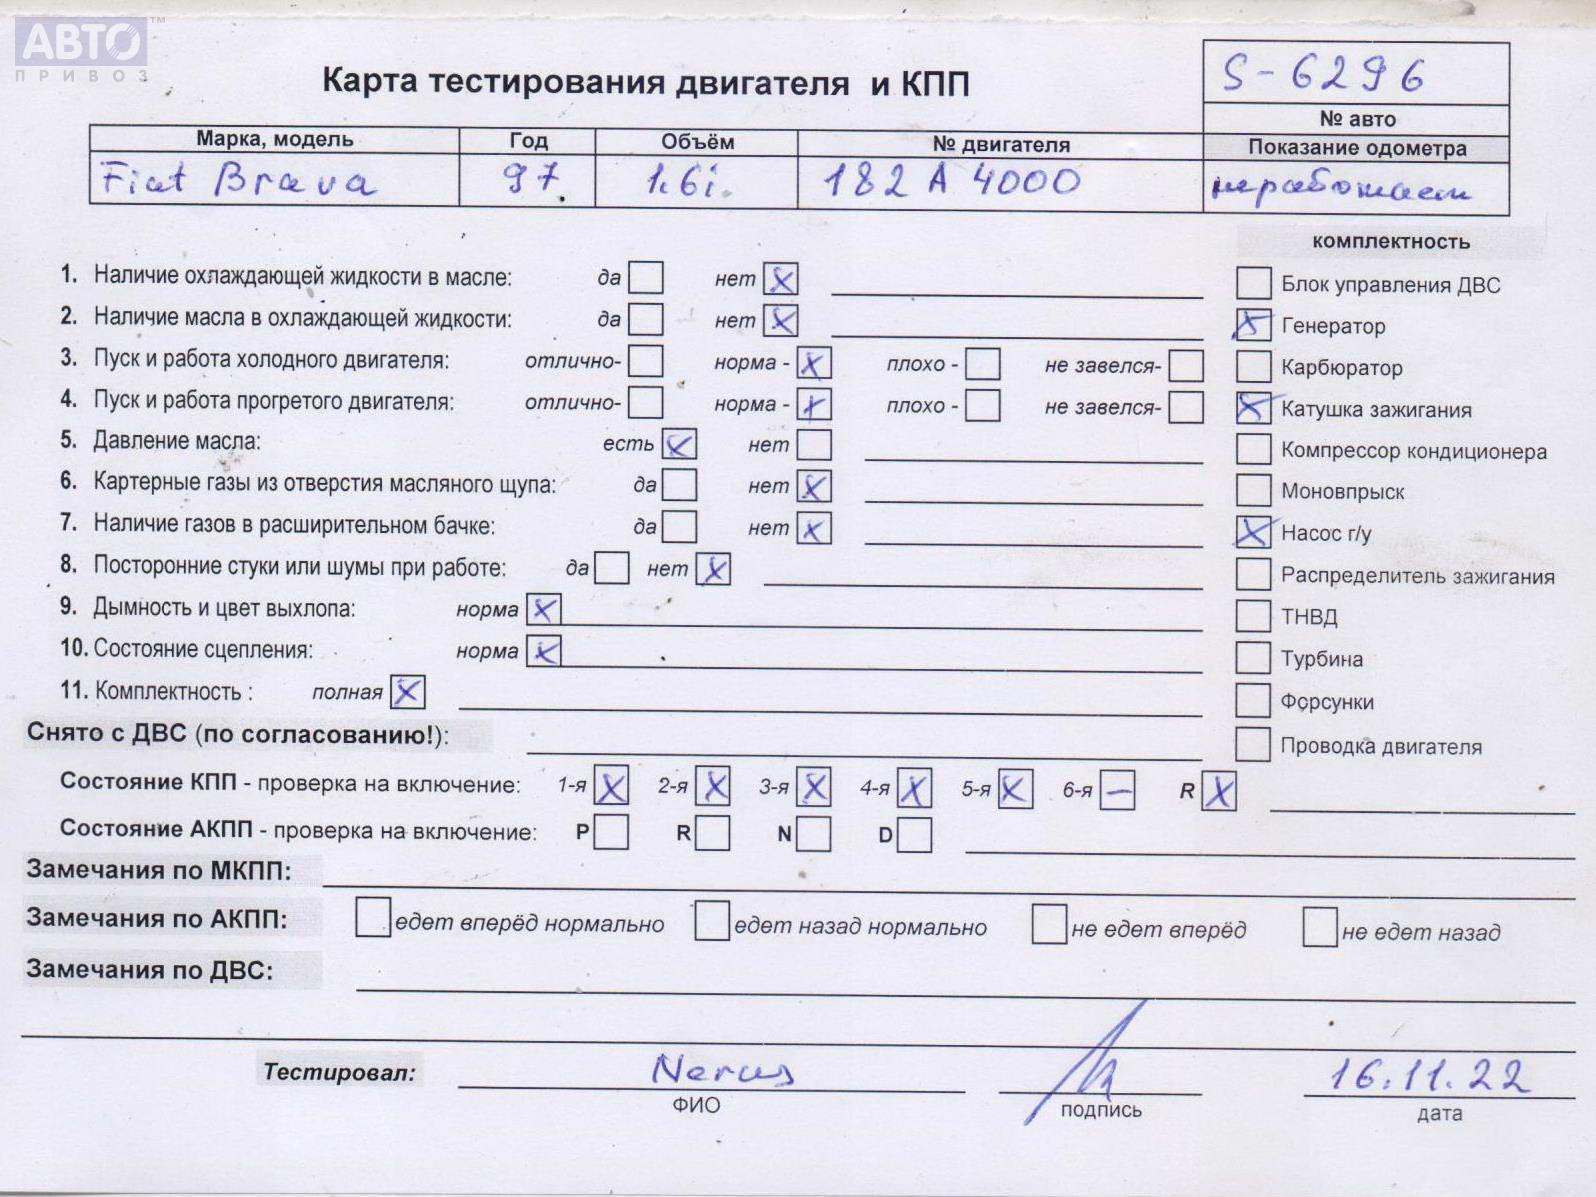 АВТО™
ПРИВОЗ
Карта тестирования двигателя и КПП
S-6296
№ авто
Марка, модель Год Объём № двигателя Показание одометра
Fiat Brava 97 1.6i. 182 A 4000 неработает
комплектность
1. Наличие охлаждающей жидкости в масле: да нет X
Блок управления ДВС
2. Наличие масла в охлаждающей жидкости: да нет X
X Генератор
3. Пуск и работа холодного двигателя: отлично- норма - X плохо - не завелся-
Карбюратор
4. Пуск и работа прогретого двигателя: отлично- норма - X плохо - не завелся-
X Катушка зажигания
5. Давление масла: есть X нет
Компрессор кондиционера
6. Картерные газы из отверстия масляного щупа: да нет X
Моновпрыск
7. Наличие газов в расширительном бачке: да нет X
X Насос г/у
8. Посторонние стуки или шумы при работе: да нет X
Распределитель зажигания
9. Дымность и цвет выхлопа: норма X
ТНВД
10. Состояние сцепления: норма X
Турбина
11. Комплектность : полная X
Форсунки
Снято с ДВС (по согласованию!):
Проводка двигателя
Состояние КПП - проверка на включение: 1-я X 2-я X 3-я X 4-я X 5-я X 6-я — R X
Состояние АКПП - проверка на включение: P R N D
Замечания по МКПП:
Замечания по АКПП: едет вперёд нормально едет назад нормально не едет вперёд не едет назад
Замечания по ДВС:
Тестировал: 16.11.22
ФИО подпись дата